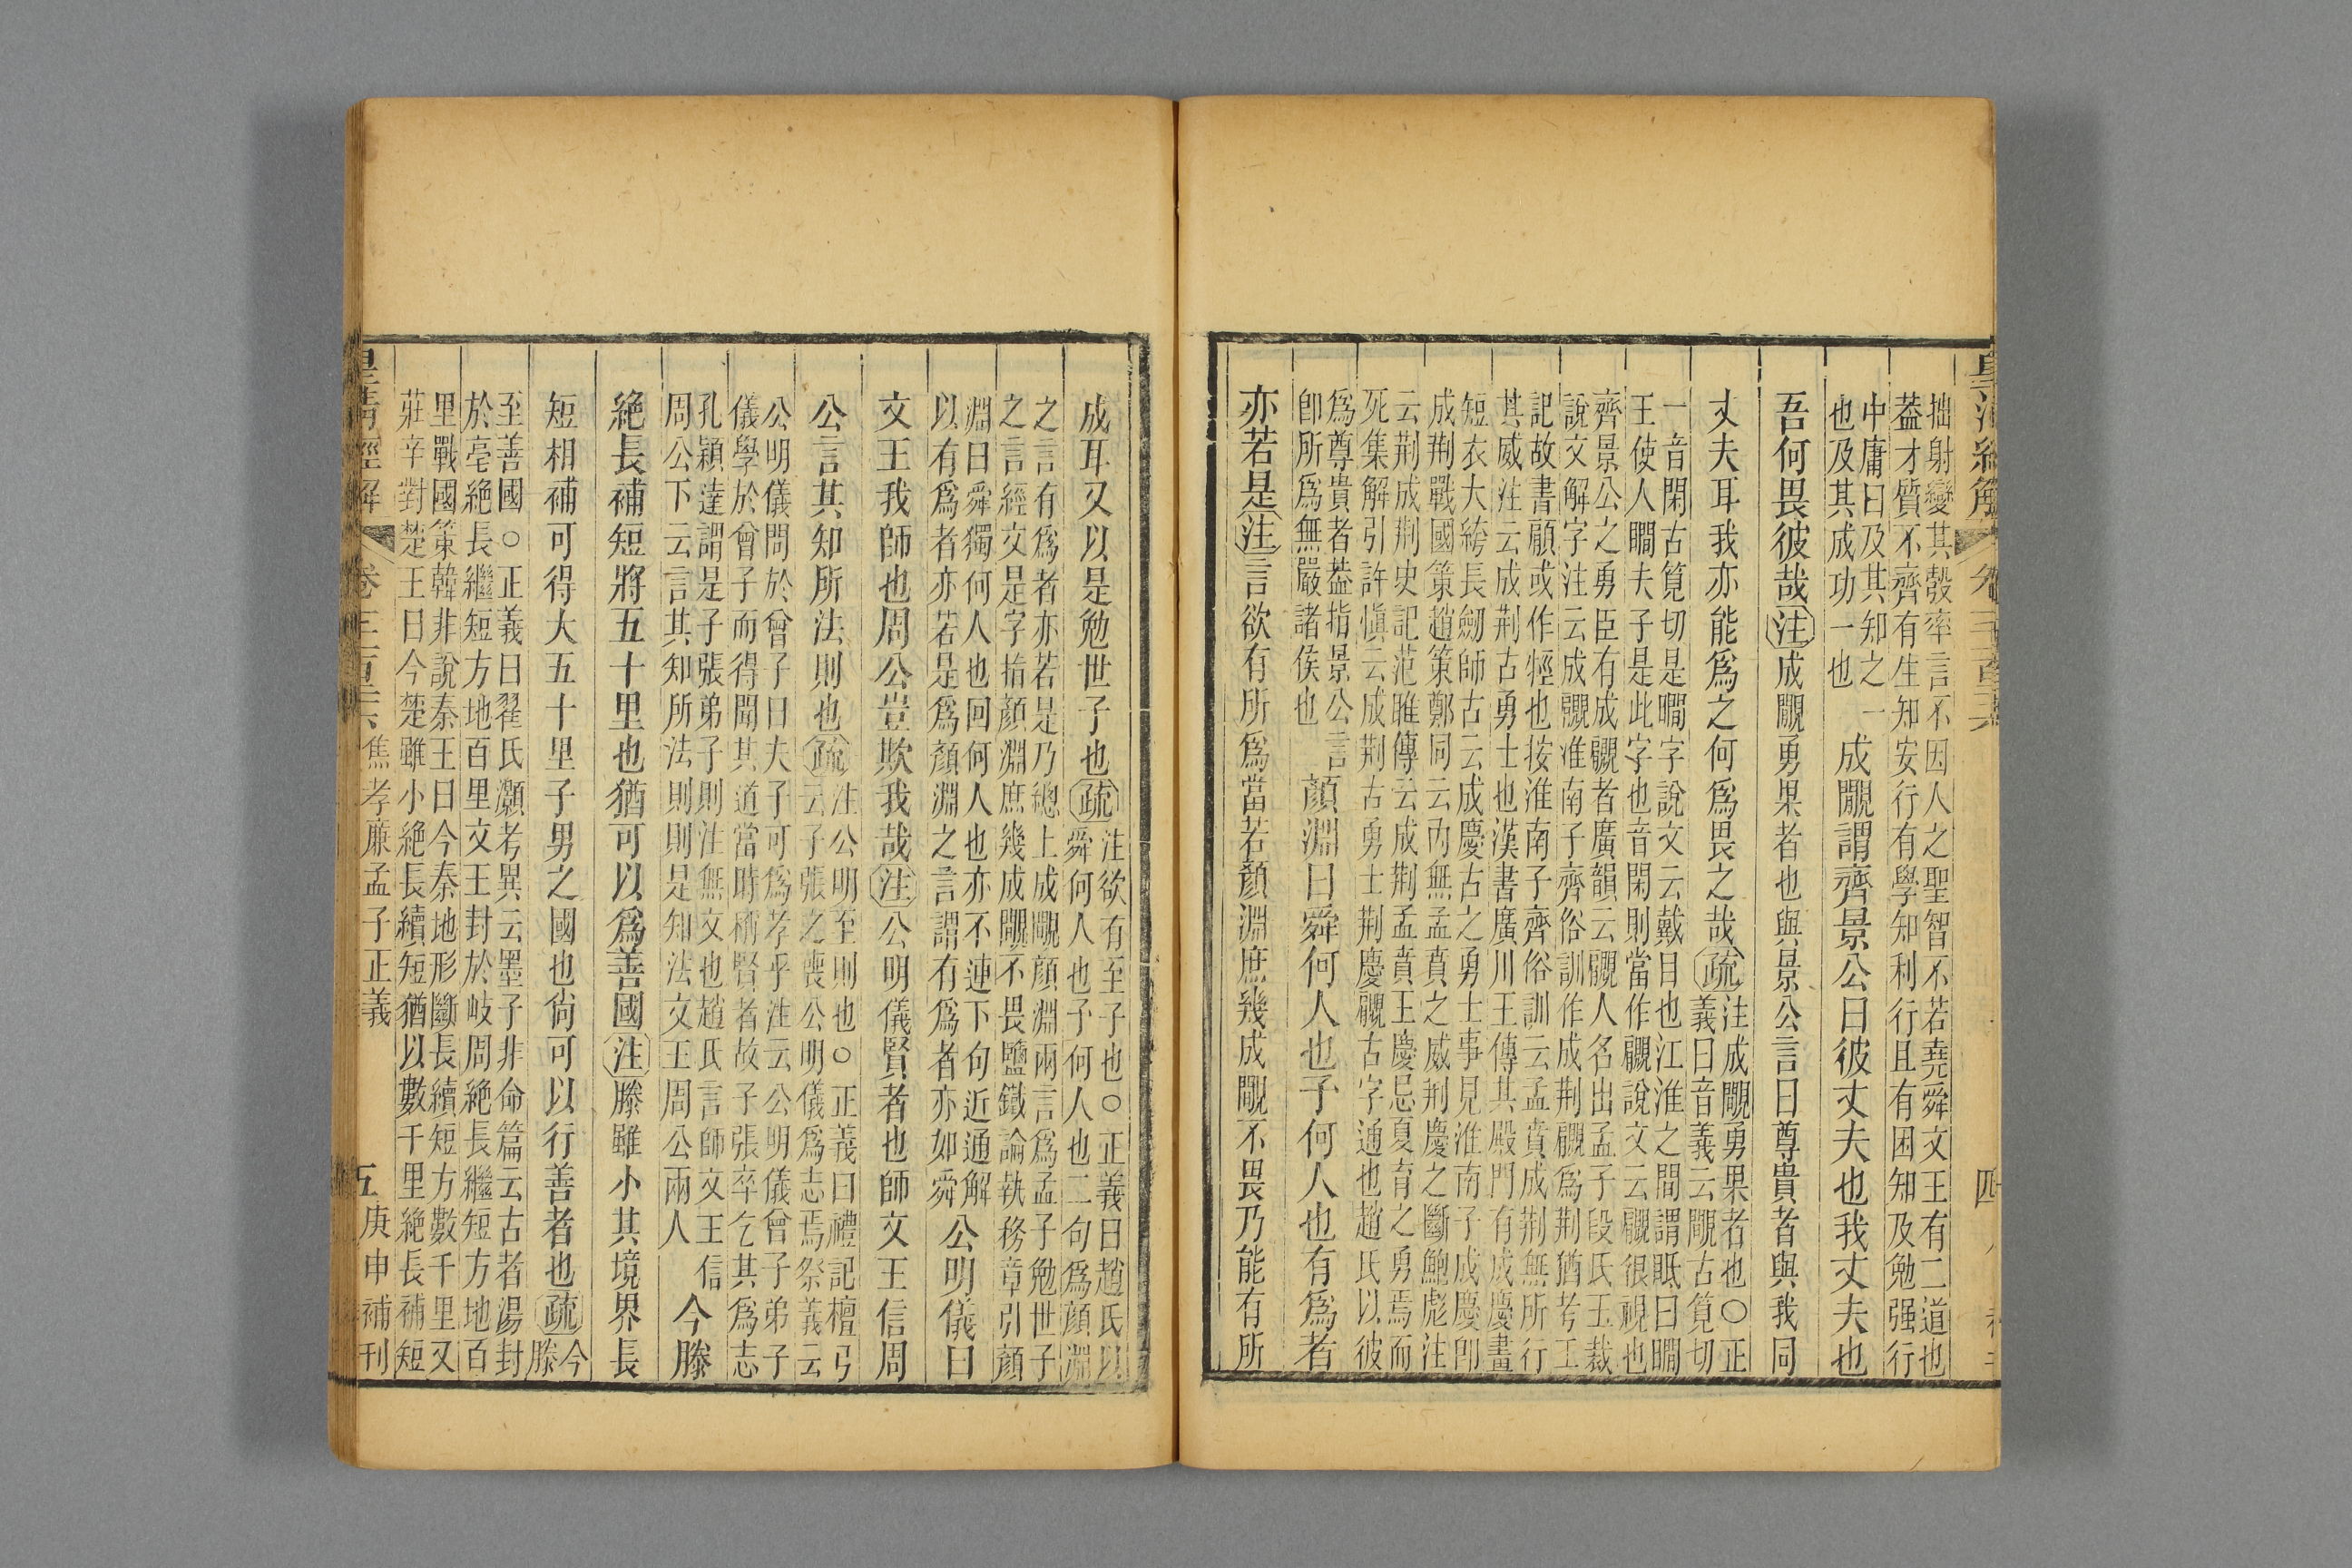 皇清經解
四
拙射變其彀率言不因人之聖智不若堯舜文王有二道也
葢才質不齊有生知安行有學知利行且有困知及勉强行
中庸曰及其知之一
也及其成功一也
成覸謂齊景公曰彼丈夫也我丈夫也
吾何畏彼哉注成覸勇果者也與景公言曰尊貴者與我同
丈夫耳我亦能爲之何爲畏之哉疏
注成覸勇果者也○正
義曰音義云覸古筧切
一音閑古筧切是瞷字說文云戴目也江淮之間謂眡曰瞷
王使人瞷夫子是此字也音閑則當作覵說文云覵很視也
齊景公之勇臣有成覵者廣韻云覵人名出孟子段氏玉裁
說文解字注云成覵淮南子齊俗訓作成荆覵爲荆猶考工
記故書顧或作牼也按淮南子齊俗訓云孟賁成荆無所行
其威注云成荆古勇士也漢書廣川王傳其殿門有成慶畫
短衣大絝長劒師古云成慶古之勇士事見淮南子成慶卽
成荆戰國策趙策鄭同云内無孟賁之威荆慶之斷鮑彪注
云荆成荆史記范雎傳云成荆孟賁王慶忌夏育之勇焉而
死集解引許愼云成荆古勇士荆慶覵古字通也趙氏以彼
爲尊貴者葢指景公言
卽所爲無嚴諸侯也
顏淵曰舜何人也予何人也有爲者
亦若是注言欲有所爲當若顏淵庶幾成覸不畏乃能有所
成耳又以是勉世子也疏
注欲有至子也○正義曰趙氏以
舜何人也予何人也二句爲顏淵
之言有爲者亦若是乃總上成覸顏淵兩言爲孟子勉世子
之言經文是字指顏淵庶幾成覸不畏鹽鐵論執務章引顏
淵曰舜獨何人也回何人也亦不連下句近通解
以有爲者亦若是爲顏淵之言謂有爲者亦如舜
公明儀曰
文王我師也周公豈欺我哉注公明儀賢者也師文王信周
公言其知所法則也疏
注公明至則也○正義曰禮記檀弓
云子張之喪公明儀爲志焉祭義云
公明儀問於曾子曰夫子可爲孝乎注云公明儀曾子弟子
儀學於曾子而得聞其道當時稱賢者故子張卒乞其爲志
孔穎達謂是子張弟子則注無文也趙氏言師文王信
周公下云言其知所法則則是知法文王周公兩人
今滕
絶長補短將五十里也猶可以爲善國注滕雖小其境界長
短相補可得大五十里子男之國也尙可以行善者也疏
今
滕
至善國○正義曰翟氏灝考異云墨子非命篇云古者湯封
於亳絶長繼短方地百里文王封於岐周絶長繼短方地百
里戰國策韓非說秦王曰今秦地形斷長續短方數千里又
莊辛對楚王曰今楚雖小絶長續短猶以數千里絶長補短
皇清經解
焦孝廉孟子正義
五
庚申補刊